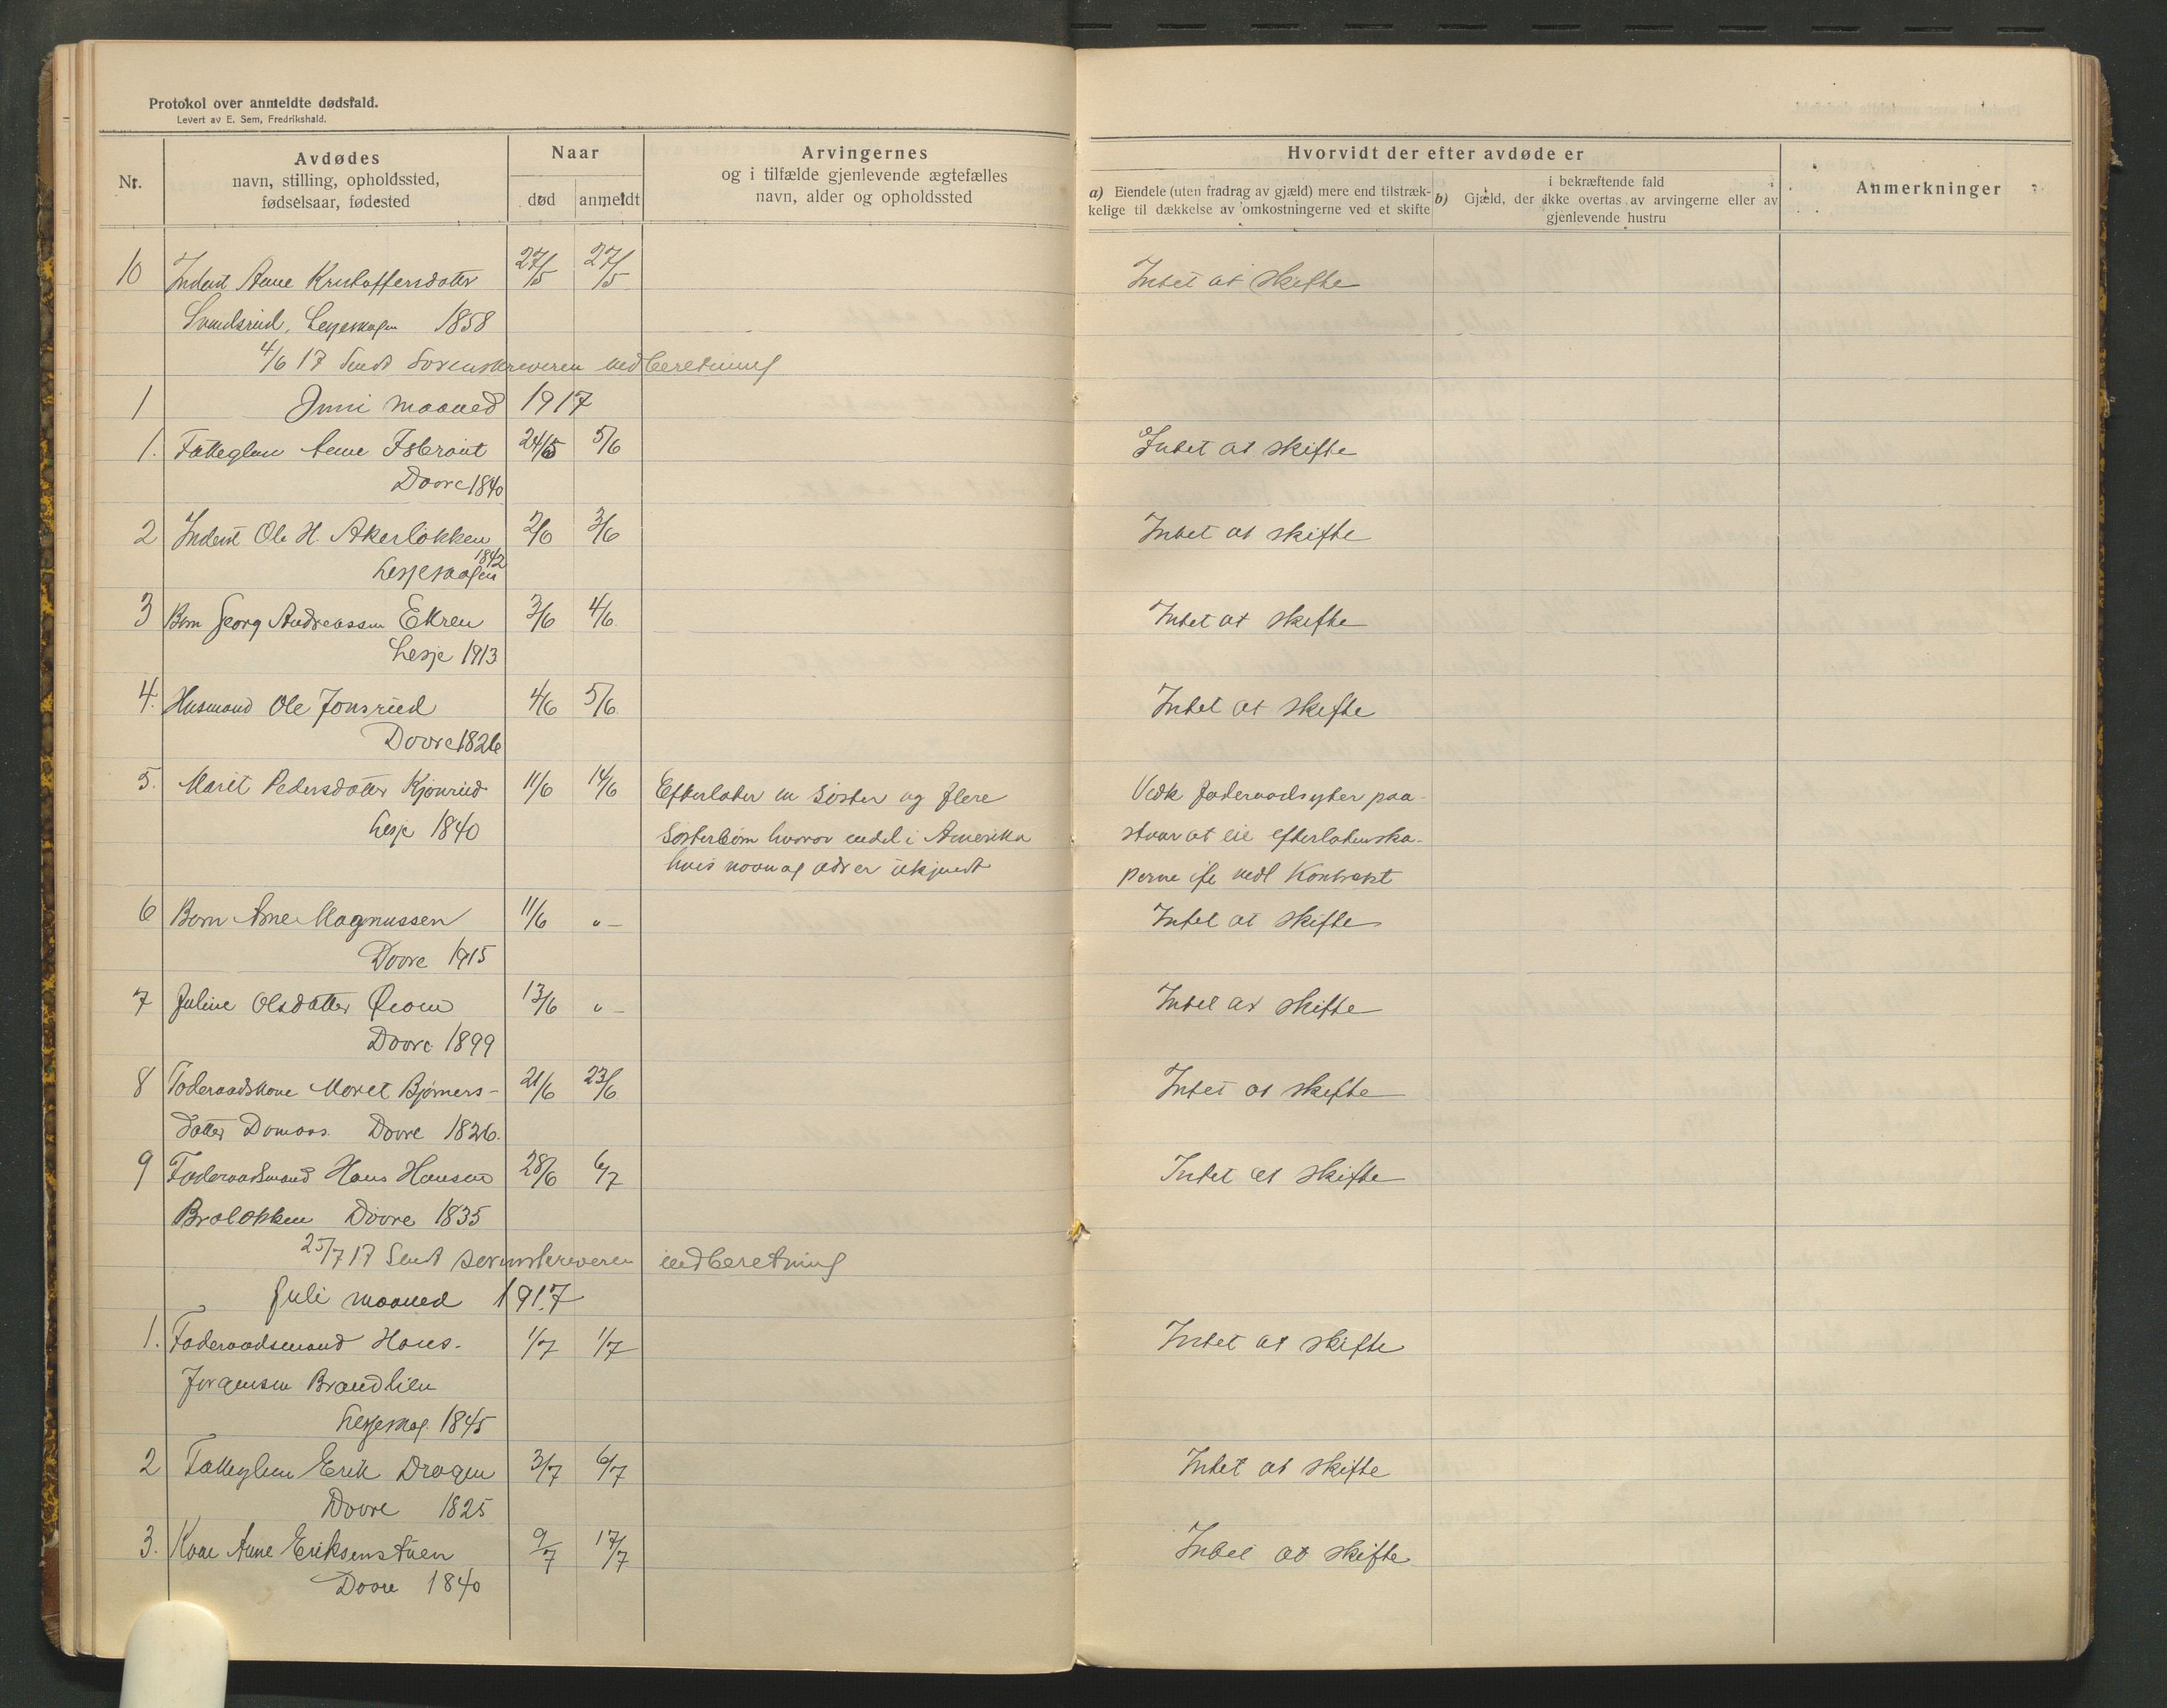 Protokol over anmeldte dødsfald.
Levert av E. Sem, Fredrikshald.
Nr.
Avdødes
navn, stilling, opholdssted,
fødselsaar, fødested
Naar
død
anmeldt
Arvingernes
og i tilfælde gjenlevende ægtefælles
navn, alder og opholdssted
Hvorvidt der efter avdøde er
a) Eiendele (uten fradrag av gjæld) mere end tilstræk-
kelige til dækkelse av omkostningerne ved et skifte
i bekræftende fald
b) Gjæld, der ikke overtas av arvingerne eller av
gjenlevende hustru
Anmerkninger
10 Inderst Anne Kristoffersdatter 27/5 27/5 Intet at skifte
Lesjeskogen 1858
4/6 17 Sendt Sorenskriveren indberetning
1 Juni maaned 1917
1. Fatteglem Anne Isbrait 24/5 5/6 Intet at skifte
Dovre 1840
2 Inderst Ole H. Akerløkken 2/6 3/6 Intet at skifte
1842
Lesjeskogen
3 Barn Georg Andreassen Ekren 3/6 4/6 Intet at skifte
Lesje 1913
4. Husmand Ole Jonsrud 4/6 5/6 Intet at skifte
Dovre 1826
5. Marit Pedersdatter Kjønrud 11/6 14/6 Efterlater en søster og flere Vedk føderaadsyter paa-
Lesje 1840 søsterbørn hvorav endel i Amerika staar at eie efterladenska-
hvis navn og adr er ukjendt perne if. vedl Kontrakt
6 Barn Arne Magnussen 11/6 " - Intet at skifte
Dovre 1915
7 Juline Olsdatter Øiom 13/6 " - Intet at skifte
Dovre 1899
8 Føderaadskone Maret Bjørners- 21/6 23/6 Intet at skifte
datter Domaas. Dovre 1826.
9 Føderaadsmand Hans Hansen 28/6 6/7 Intet at skifte
Braløkken Dovre 1835
25/7 17 Sendt sorenskriveren indberetning
Juli maaned 1917
1. Føderaadsmand Hans 1/7 1/7 Intet at skifte
Jørgensen Brandlien
Lesjeskog. 1845
2 Fatteglem Erik Dragen 3/7 6/7 Intet at skifte
Dovre 1825
3. Kone Anne Eriksenstuen 9/7 17/7 Intet at skifte
Dovre 1840